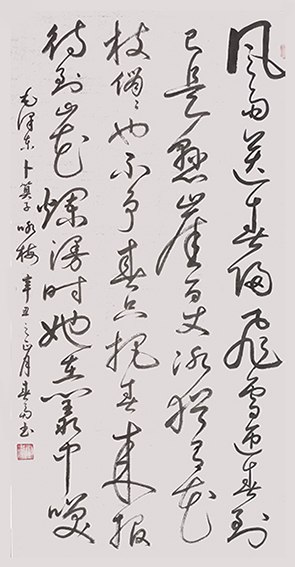 风雨送春归飞雪迎春到
已是悬崖百丈冰犹有花
枝俏俏也不争春只把春来报
待到山花烂漫时她在丛中笑
毛泽东卜算子咏梅辛丑之正月春雨书